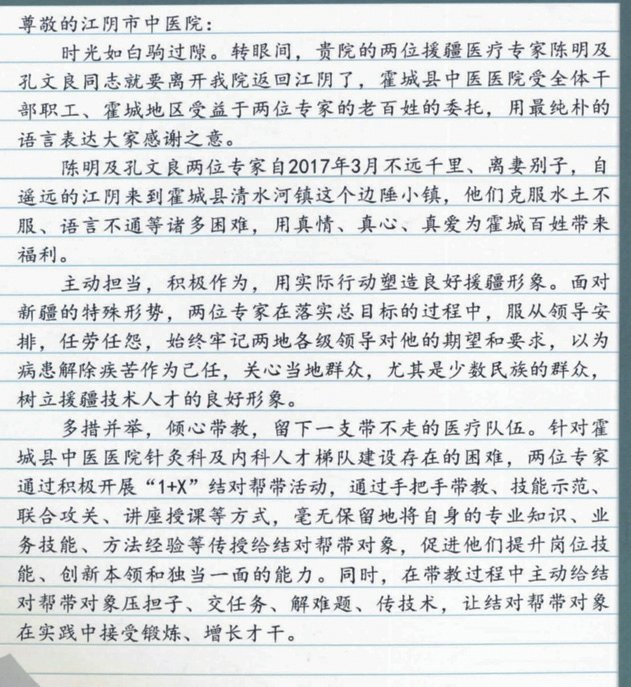 尊敬的江阴市中医院：
时光如白驹过隙。转眼间，贵院的两位援疆医疗专家陈明及
孔文良同志就要离开我院返回江阴了，霍城县中医医院受全体干
部职工、霍城地区受益于两位专家的老百姓的委托，用最纯朴的
语言表达大家感谢之意。
陈明及孔文良两位专家自2017年3月不远千里、离妻别子，自
遥远的江阴来到霍城县清水河镇这个边陲小镇，他们克服水土不
服、语言不通等诸多困难，用真情、真心、真爱为霍城百姓带来
福利。
主动担当，积极作为，用实际行动塑造良好援疆形象。面对
新疆的特殊形势，两位专家在落实总目标的过程中，服从领导安
排，任劳任怨，始终牢记两地各级领导对他的期望和要求，以为
病患解除疾苦作为己任，关心当地群众，尤其是少数民族的群众，
树立援疆技术人才的良好形象。
多措并举，倾心带教，留下一支带不走的医疗队伍。针对霍
城县中医医院针灸科及内科人才梯队建设存在的困难，两位专家
通过积极开展“1+X”结对帮带活动，通过手把手带教、技能示范、
联合攻关、讲座授课等方式，毫无保留地将自身的专业知识、业
务技能、方法经验等传授给结对帮带对象，促进他们提升岗位技
能、创新本领和独当一面的能力。同时，在带教过程中主动给结
对帮带对象压担子、交任务、解难题、传技术，让结对帮带对象
在实践中接受锻炼、增长才干。